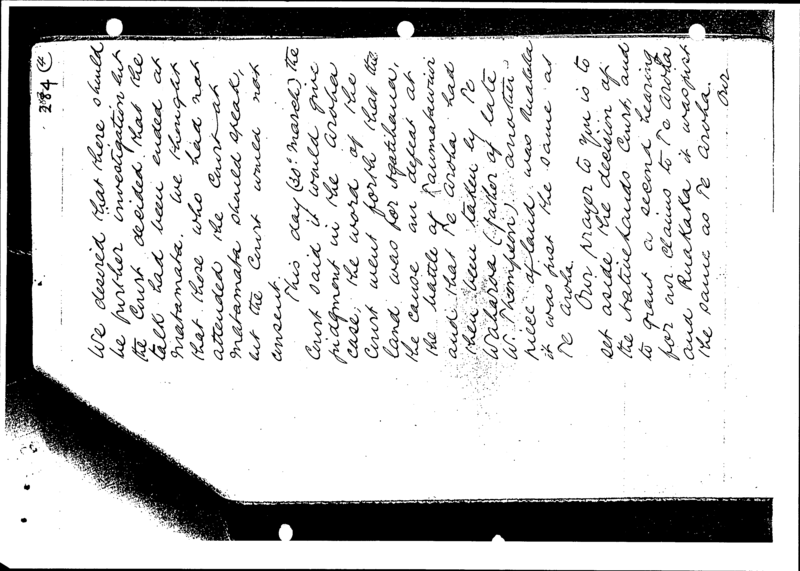 284 C
We desired that there should
be further investigation but
the Court decided that the
talk had been ended at
Matamata. We thought
that those who had not
attended the Court at
Matamata should speak,
but the Court would not
consent.
This day (30th March) the
Court said it would give
judgment in the Aroha
case, the word of the
Court went forth that the
land was for Ngatihaua,
the cause an defeat at
the battle of Taumatawiwi
and that Te Aroha had
then been taken by Te
Waharoa (father of late
W. Thompson) another
piece of land was
it was just the same as
Te Aroha.
Our prayer to you is to
set aside the decision of
the Native Lands Court and
to grant a second hearing
for our claims to Te Aroha
and Ruakaka it was just
the same as Te Aroha.
Our